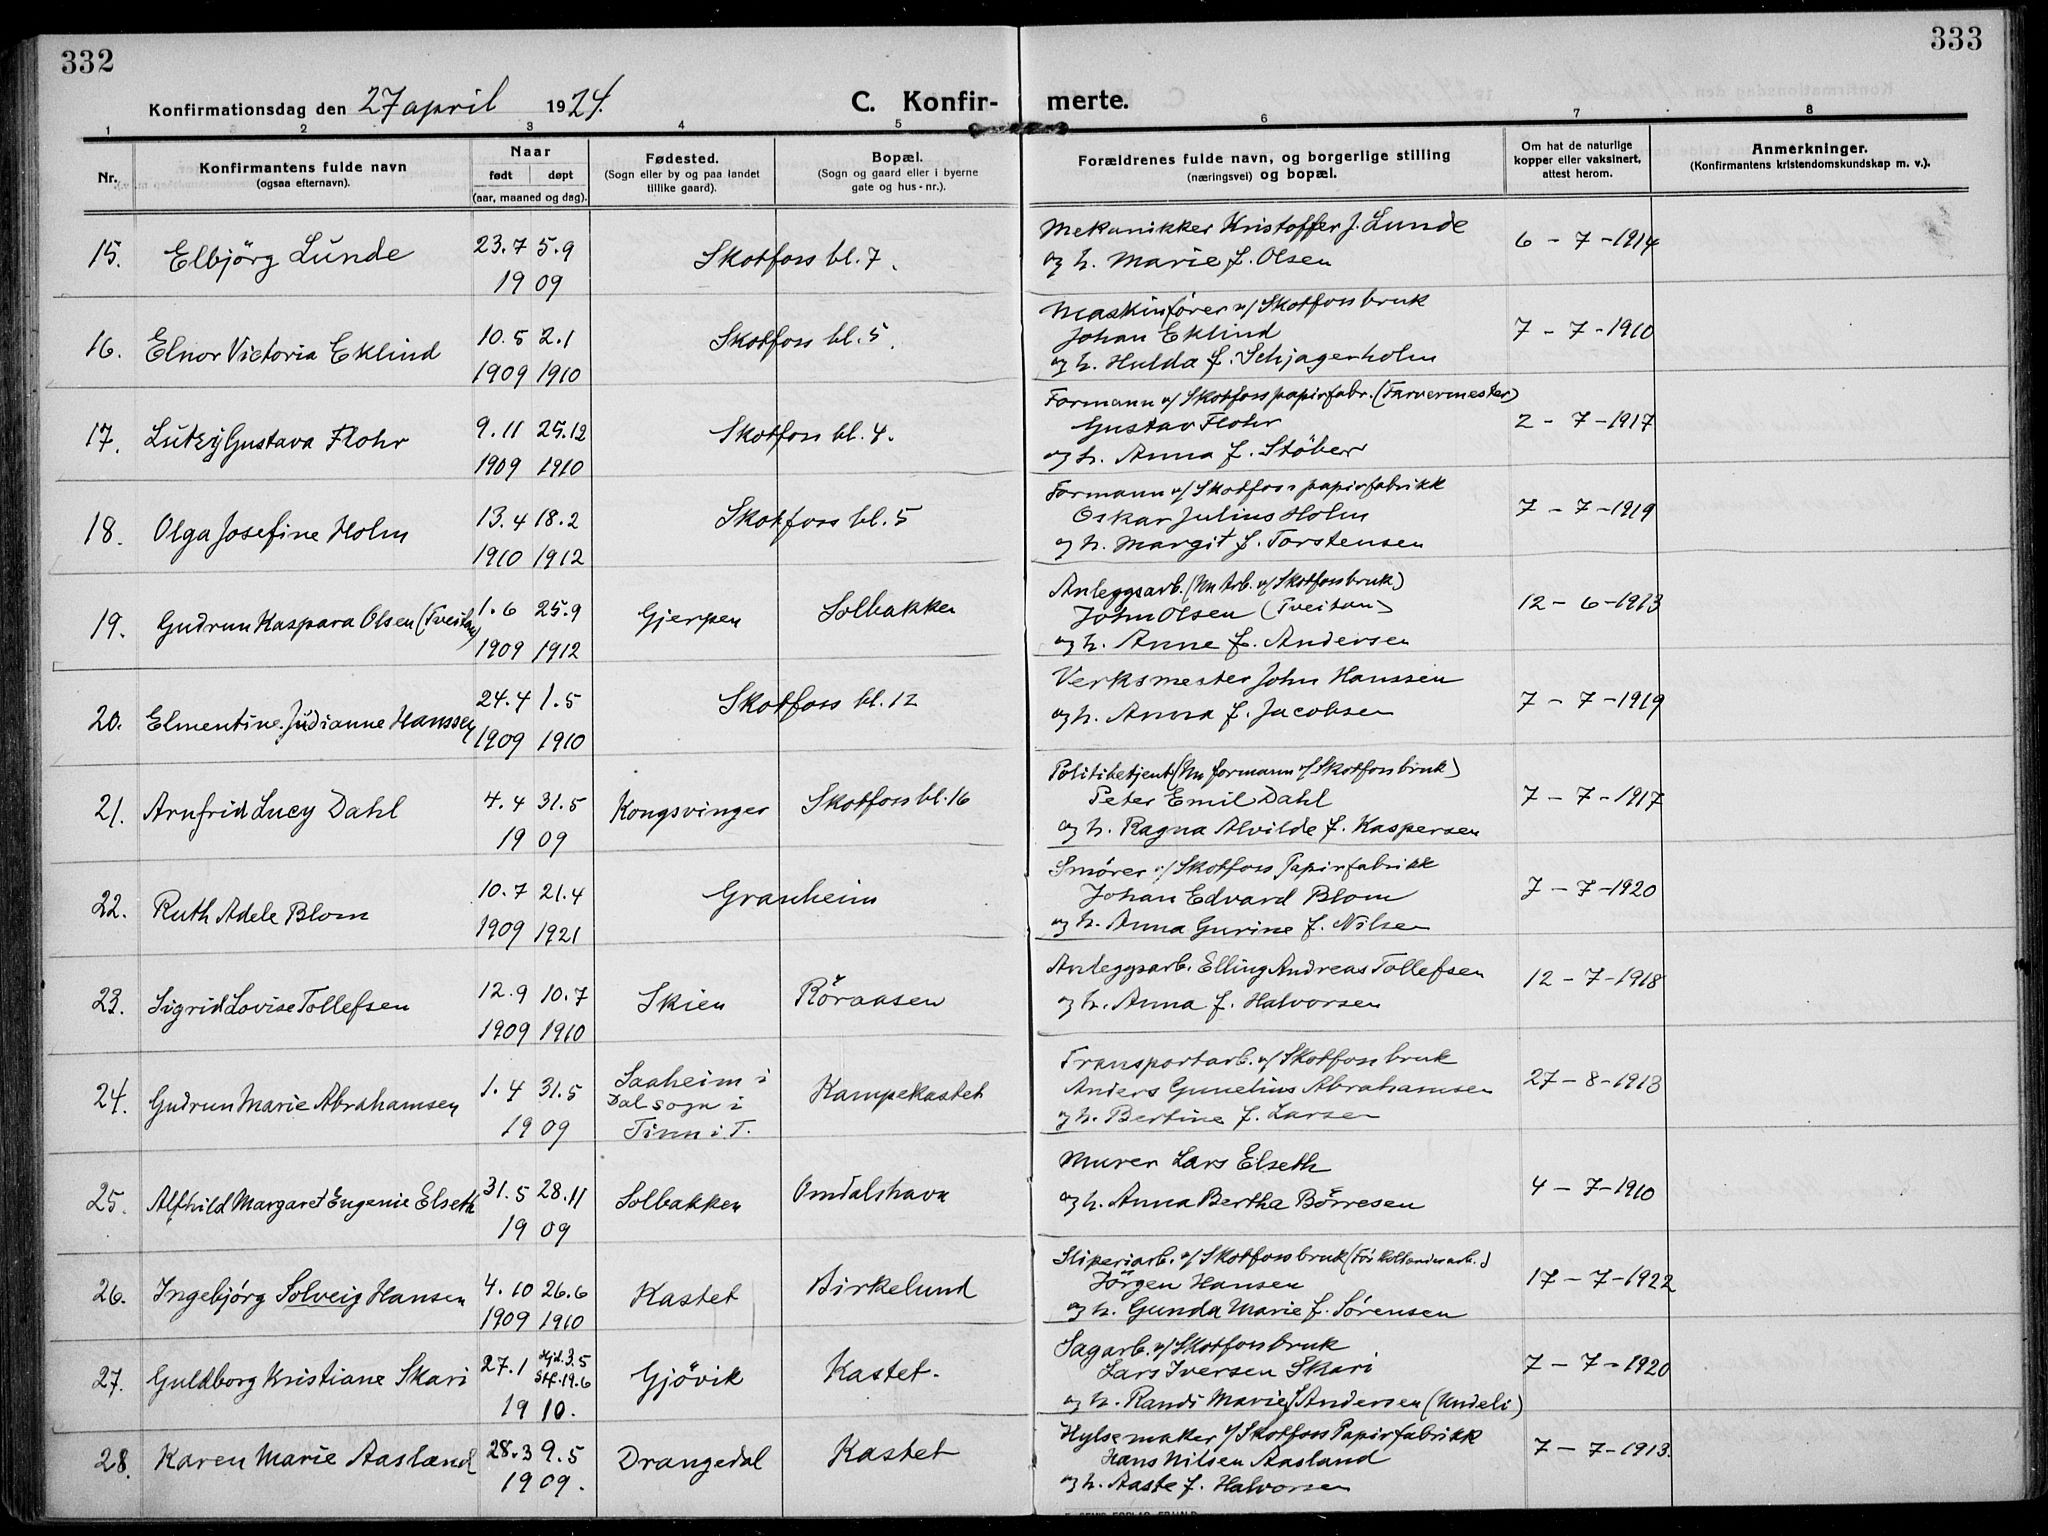 332
333
Konfirmationsdag den 27 april 1924.
C. Konfir- merte.
1 2 3 4 5 6 7 8
Nr.
Konfirmantens fulde navn
(ogsaa efternavn).
Naar
født døpt
(aar, maaned og dag).
Fødested.
(Sogn eller by og paa landet
tillike gaard).
Bopæl.
(Sogn og gaard eller i byerne
gate og hus-nr.).
Forældrenes fulde navn, og borgerlige stilling
(næringsvei) og bopæl.
Om hat de naturlige
kopper eller vaksinert,
attest herom.
Anmerkninger.
(Konfirmantens kristendomskundskap m. v.).
15. Elbjörg Lunde 23.7 5.9
1909
Skotfoss bl. 7.
Mekanikker Kristoffer J. Lunde
og h. Marie f. Olsen
6-7-1914
16. Elnor Victoria Eklind 10.5 2.1
1909 1910
Skotfoss bl. 5.
Maskinfører v/ Skotfoss bruk
Johan Eklind
og h. Hulda f. Schjagerholm
7-7-1910
17. Lutzy Gustava Flohr 9.11 25.12
1909 1910
Skotfoss bl. 4.
Formann v/ Skotfoss papirfabr. (Farvermester)
Gustav Flohr
og h. Anna f. Stöber
2-7-1917
18. Olga Josefine Holm 13.4 18.2
1910 1912
Skotfoss bl. 5
Formann v/ Skotfoss papirfabrikk
Oskar Julius Holm
og h. Margit f. Torstensen
7-7-1919
19. Gudrun Kaspara Olsen (Tveitan) 1.6 25.9
1909 1912
Gjerpen Solbakken
Anleggsarb. (Nu Arb. v/ Skotfoss bruk)
John Olsen (Tveitan)
og h. Anne f. Andersen
12-6-1913
20. Elmentine Judianne Hanssen 24.4 1.5
1909 1910
Skotfoss bl. 12
Verksmester John Hanssen
og h. Anna f. Jacobsen
7-7-1919
21. Arnfrid Lucy Dahl 4.4 31.5
1909
Kongsvinger Skotfoss bl. 16
Politibetjent (Nu formann v/ Skotfoss bruk)
Peter Emil Dahl
og h. Ragna Alvilde f. Kaspersen
7-7-1917
22. Ruth Adele Blom 10.7 21.4
1909 1921
Granheim
Smører v/ Skotfoss Papirfabrikk
Johan Edvard Blom
og h. Anna Gurine f. Nilsen
7-7-1920
23. Sigrid Lovise Tollefsen 12.9 10.7
1909 1910
Skien Röraasen
Anleggsarb. Elling Andreas Tollefsen
og h. Anna f. Halvorsen
12-7-1918
24. Gudrun Marie Abrahamsen 1.4 31.5
1909
Saaheim i
Dal sogn i
Tinn i T.
Kampekastet
Transportarb. v/ Skotfoss bruk
Anders Gunelius Abrahamsen
og h. Bertine f. Larsen
27-8-1913
25. Alfhild Margaret Eugenie Elseth 31.5 28.11
1909
Solbakken Omdalshavn
Murer Lars Elseth
og h. Anna Bertha Börresen
4-7-1910
26. Ingebjørg Solveig Hansen 4.10 26.6
1909 1910
Kastet Birkelund
Sliperiarb. v/ Skotfoss bruk (Før hollenderarb.)
Jörgen Hansen
og h. Gunda Marie f. Sørensen
17-7-1922
27. Guldborg Kristiane Skari 27.1 Hjd. 3.5
Stf. 19.6
1910.
Gjövik Kastet.
Sagarb. v/ Skotfoss bruk
Lars Iversen Skari
og h. Randi Marie f. Andersen (Undeli)
7-7-1920
28. Karen Marie Aasland 28.3 9.5
1909.
Drangedal Kastet
Hylsemaker v/ Skotfoss Papirfabrikk
Hans Nilsen Aasland
og h. Aaste f. Halvorsen
7-7-1913.